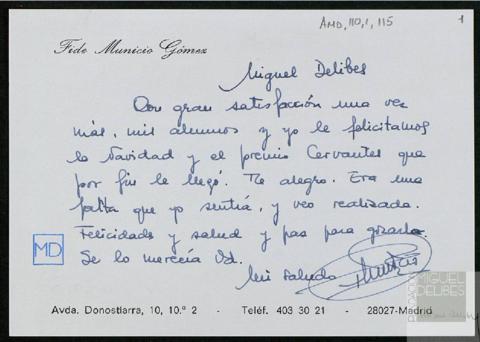 AMD, 110, 1, 115
1
Fide Municio Gómez
Miguel Delibes
Con gran satisfacción una vez
más, mis alumnos y yo le felicitamos
la Navidad y el premio Cervantes que
por fin le llegó. Me alegro. Era una
falta que yo sentía, y veo realizada.
Felicidades y salud y paz para gozarla.
Se lo merecía Vd.
Mi saludo
MD
Avda. Donostiarra, 10, 10.º 2 - Teléf. 403 30 21 - 28027-Madrid
MIGUEL
DELIBES